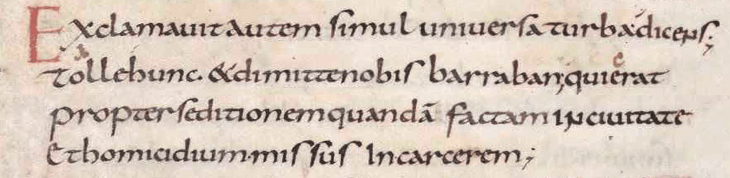 Exclamavit autem simul universa turba dicens;
Tolle hunc. & dimitte nobis barraban; qui erat
propter seditionem quandã factam in civitate
Et homicidium. missus In carcerem;